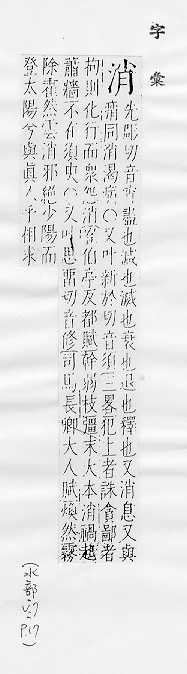 字彙
消 先彫切音宵盡也滅也減也衰也退也釋也又消息又與
痟同消渴病〇又叶新於切音須三畧犯上者誅貪鄙者
拘則化行而衆惡消崔伯亭反都賦幹弱枝彊末大本消禍起
蕭牆不在須臾〇又叶思留切音修司馬長卿大人賦煥然霧
除霍然雲消邪絕少陽而
登太陽兮與眞人乎相求
(水部
P.17)